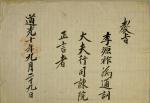 教旨
李源祚為通訓
大夫行司諫院
正言者
道光十年九月二十九日